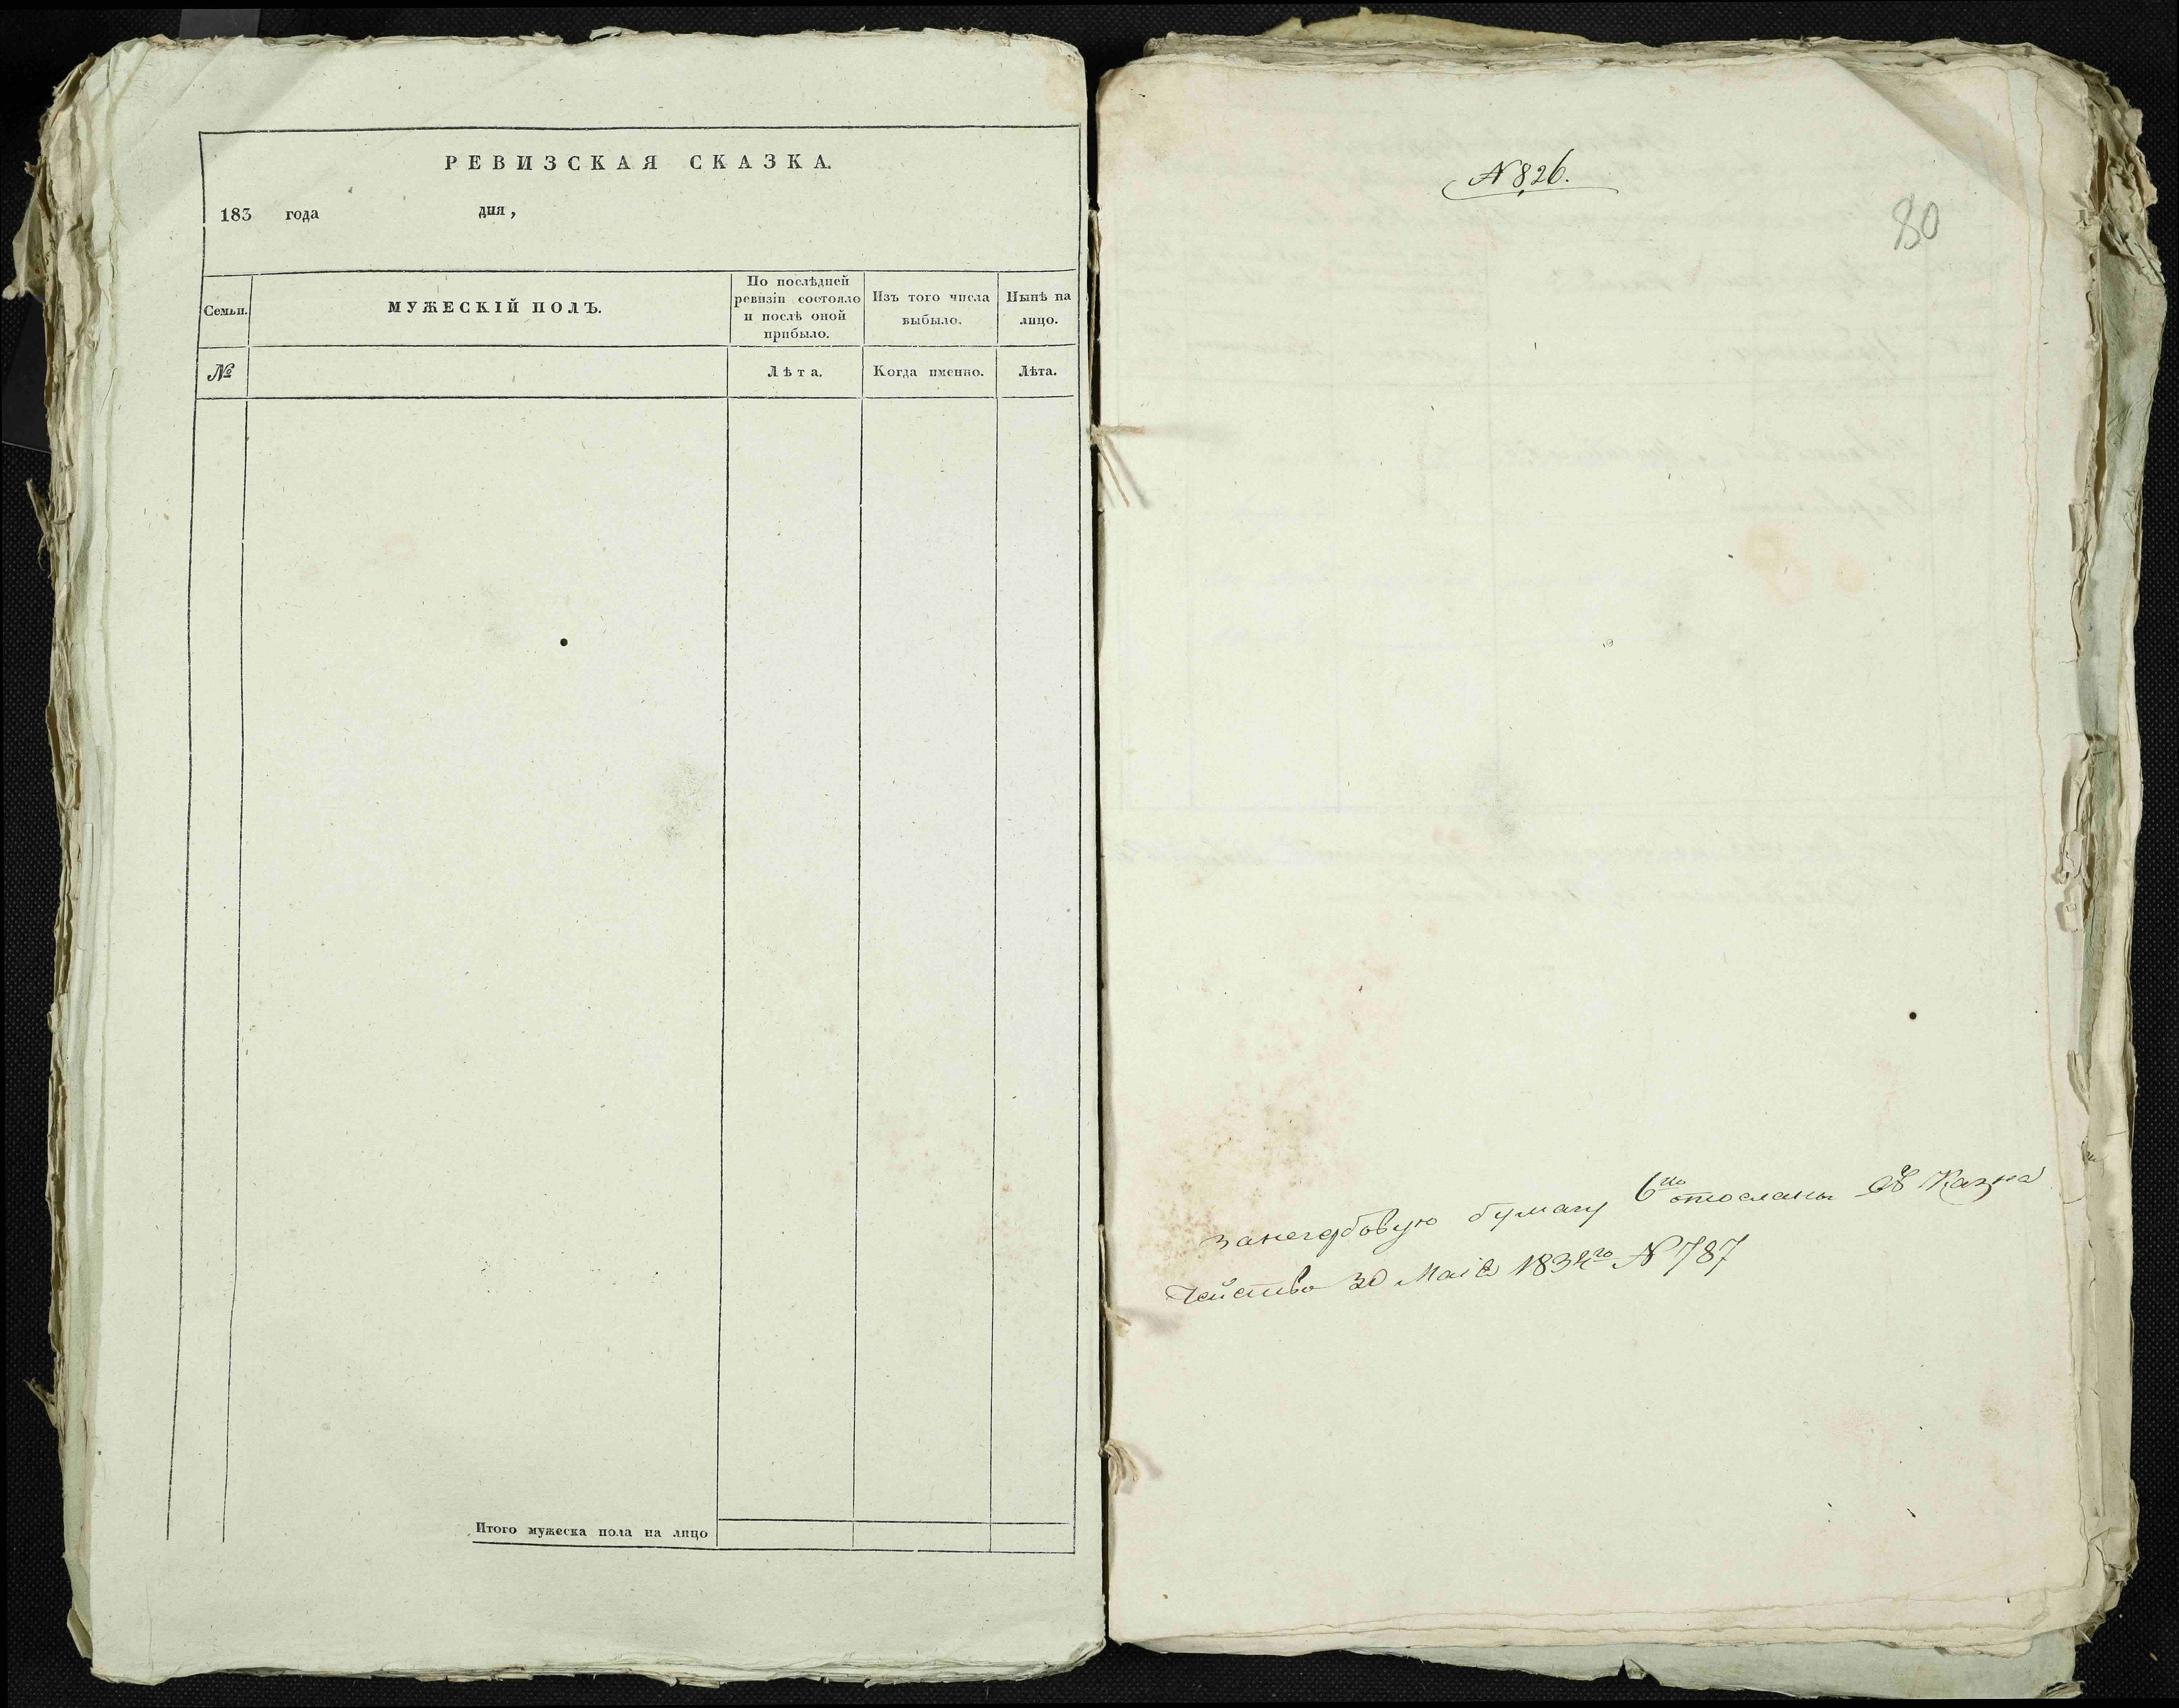 РЕВИЗСКАЯ СКАЗКА.
183 года дня,
Семьи.
МУЖЕСКІЙ ПОЛЪ.
По послѣдней
ревизіи состояло
и послѣ оной
прибыло.
Изъ того числа
выбыло.
Нынѣ на
лицо.
№
Лѣта.
Когда именно.
Лѣта.
Итого мужеска пола на лицо
№ 826.
80
за негербовую бумагу отосланы въ Казна
чейство 30 Маія 1834го № 787